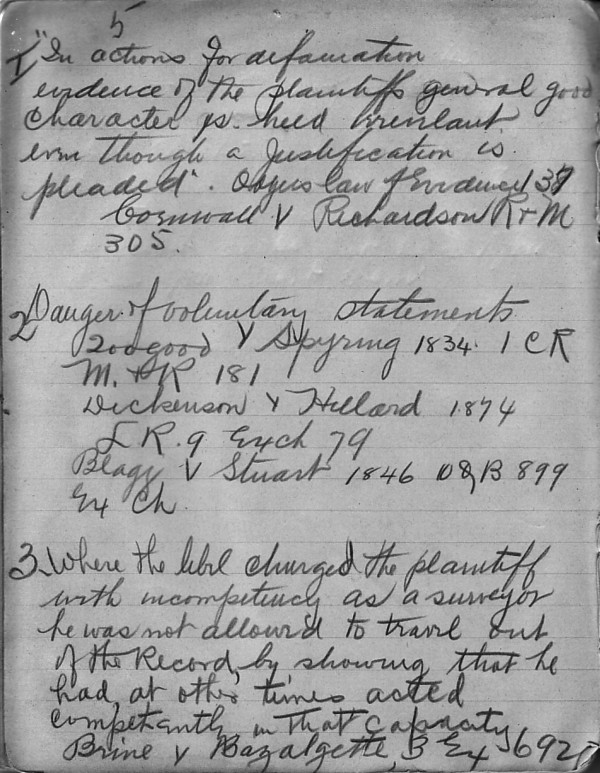 5
1 "In actions for defamation
evidence of the plaintiffs general good
character is held irrevelant
even though a Justification is
pleaded". law of Evidence 137
Cornwall V Richardson R + M
305.
2 Danger of voluntary statements
Toogood V Spyring 1834. 1 C R
M. & R 181
Dickenson V Hillard 1874
L R. 9 Exch 79
Blagg V Stuart 1846 B 899
Ex Ch
3. Where the libel charged the plaintiff
with incompetency as a surveyor
he was not allowed to travel out
of the Record, by showing that he
had at other times acted
competently in that capacity
Brine v Bazalgette, 3 Ex 692